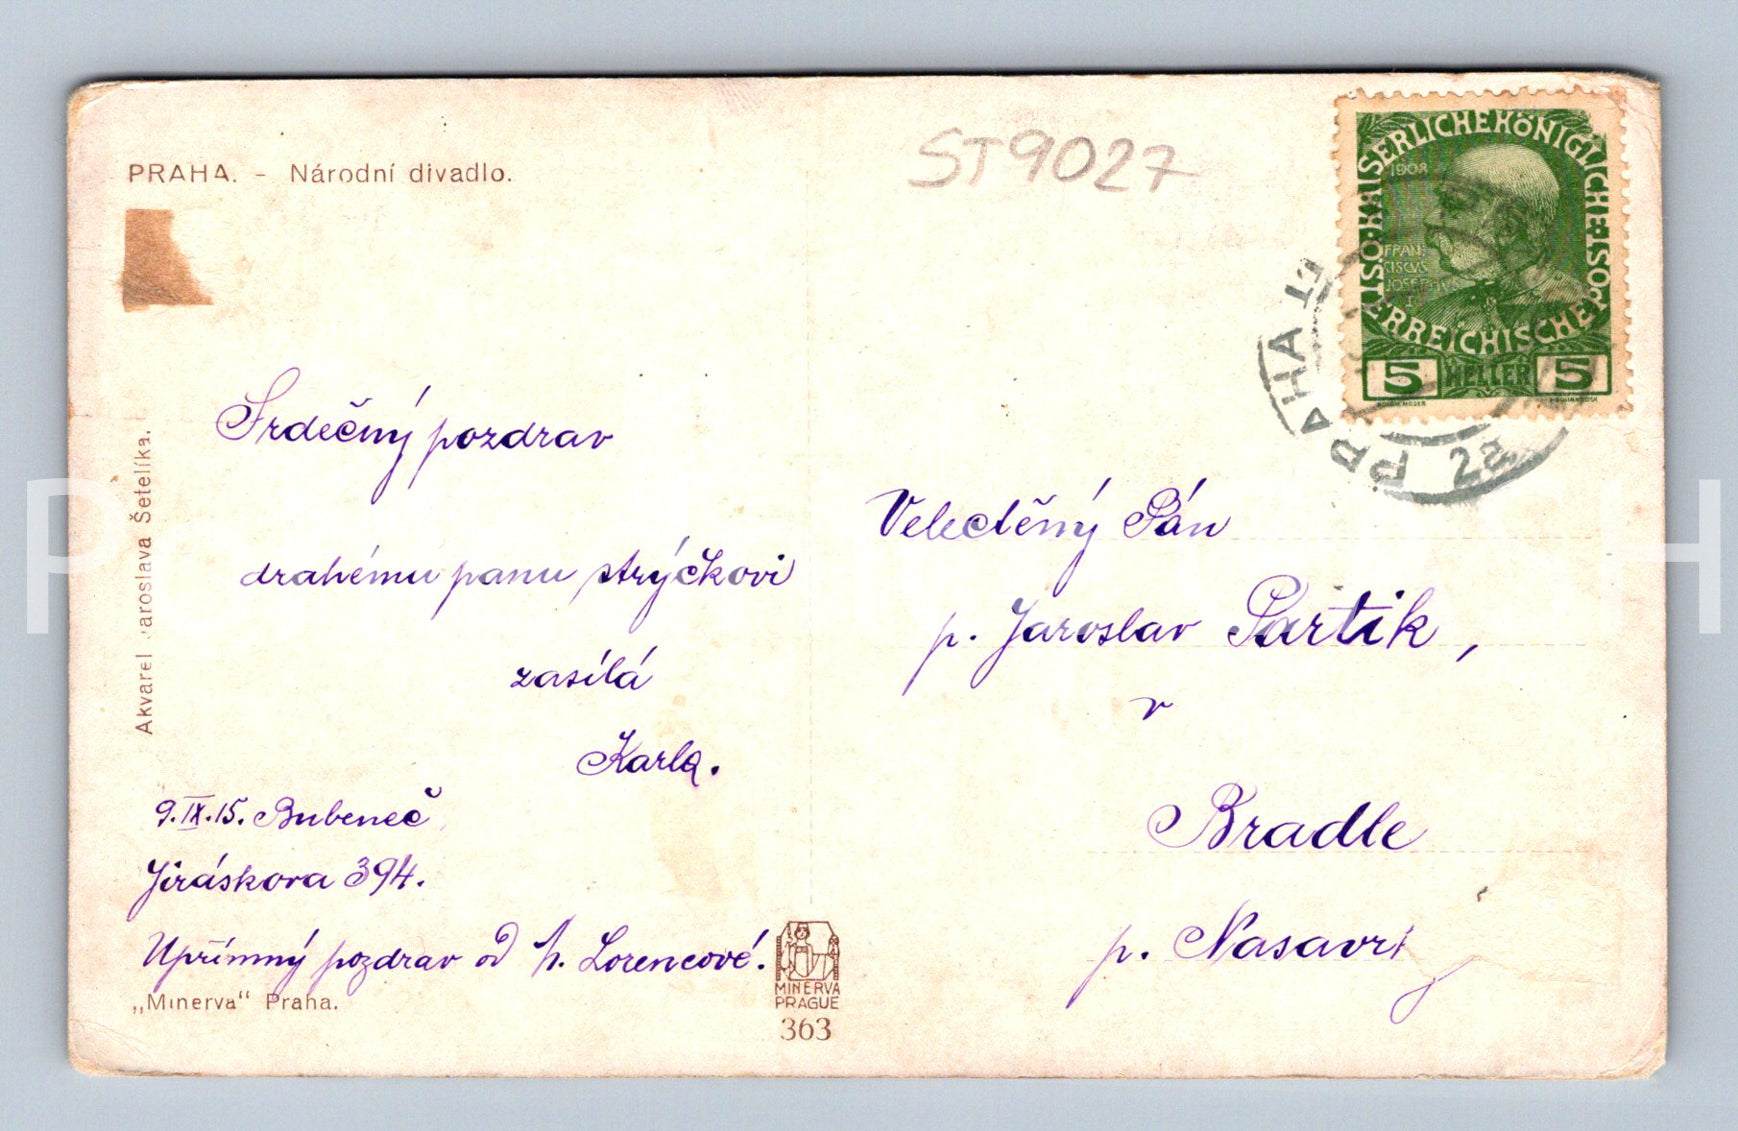 PRAHA. - Národní divadlo.
ST9027
ÖSTERREICHISCHE·KAISERLICHEKÖNIGLICHE·POST
1908
FRAN
CISCVS
JOSEPHVS
I.
5 HELLER 5
PRAHA
22
Srdečný pozdrav
drahému panu strýčkovi
zasílá
Karla.
9.IX.15. Bubeneč
Jiráskova 394.
Upřímný pozdrav od h. Lorencové.
Akvarel Jaroslava Šetelíka.
„Minerva“ Praha.
MINERVA
PRAGUE
363
Velectěný Pán
p. Jaroslav Partik,
v
Bradle
p. Nasavrky
P
H